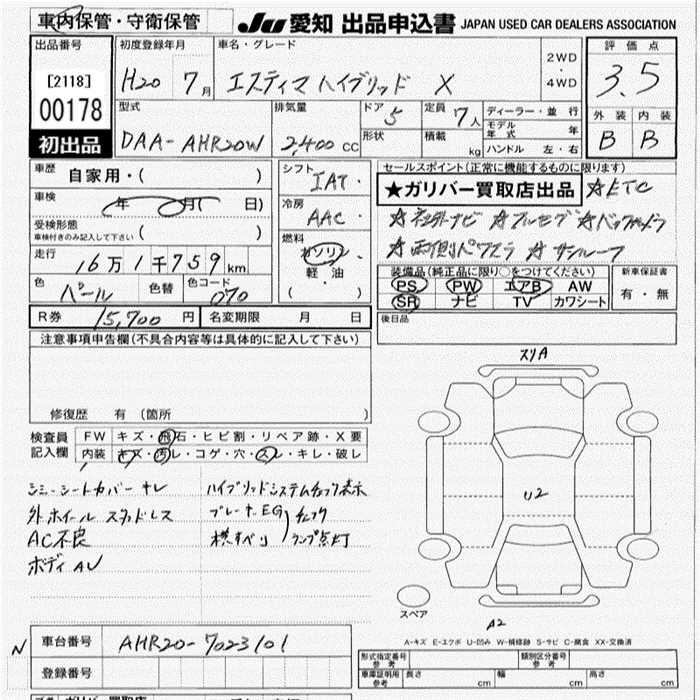 車内保管・守衛保管
JU 愛知 出品申込書 JAPAN USED CAR DEALERS ASSOCIATION
出品番号 初度登録年月 車名・グレード 評価点
[2118] H20 7月 エスティマ ハイブリッド X 2WD 4WD 3.5
00178
初出品
型式 排気量 ドア 5 定員 7人 ディーラー・並行 外装 内装
DAA-AHR20W 2,400cc 形状 積載 kg モデル年式 年 B B
ハンドル 左・右
車歴 自家用・( )
シフト IAT・
セールスポイント(正常に機能するものに限ります)
★ガリバー買取店出品 ☆ETC
車検 年 月( 日)
冷房 AAC・
☆社外ナビ ☆フルセグ ☆バックカメラ
受検形態 ( )
車検付きのみ記入して下さい
燃料 ガソリン 軽油 ( ・ )
☆両側パワスラ ☆サンルーフ
走行 16万1千759km
装備品(純正品に限り○をつけてください) 新車保証書
PS PW エアB AW 有・無
SR ナビ TV カワシート
色 パール 色替 色コード 070
後日品
R券 15,700円 名変期限 月 日
注意事項申告欄(不具合内容等は具体的に記入して下さい)
修復歴 有 (箇所 )
検査員記入欄 FW キズ・飛石・ヒビ割・リペア跡・X要
内装 キズ・汚レ・コゲ・穴・スレ・キレ・破レ
シミーシートカバー ナレ ハイブリッドシステムチェック表示
外ホイール スタッドレス ブレーキ、EG チェック
AC不良 横すべり ランプ点灯
ボディ AU
スリA
U2
スペア
A2
A-キズ E-エクボ U-凹み W-補修跡 S-サビ C-腐食 XX-交換済
N 車台番号 AHR20-7023101
登録番号
形式指定番号 参考 類別区分番号 参考
車庫証明用 参考 長さ cm 幅 cm 高さ cm